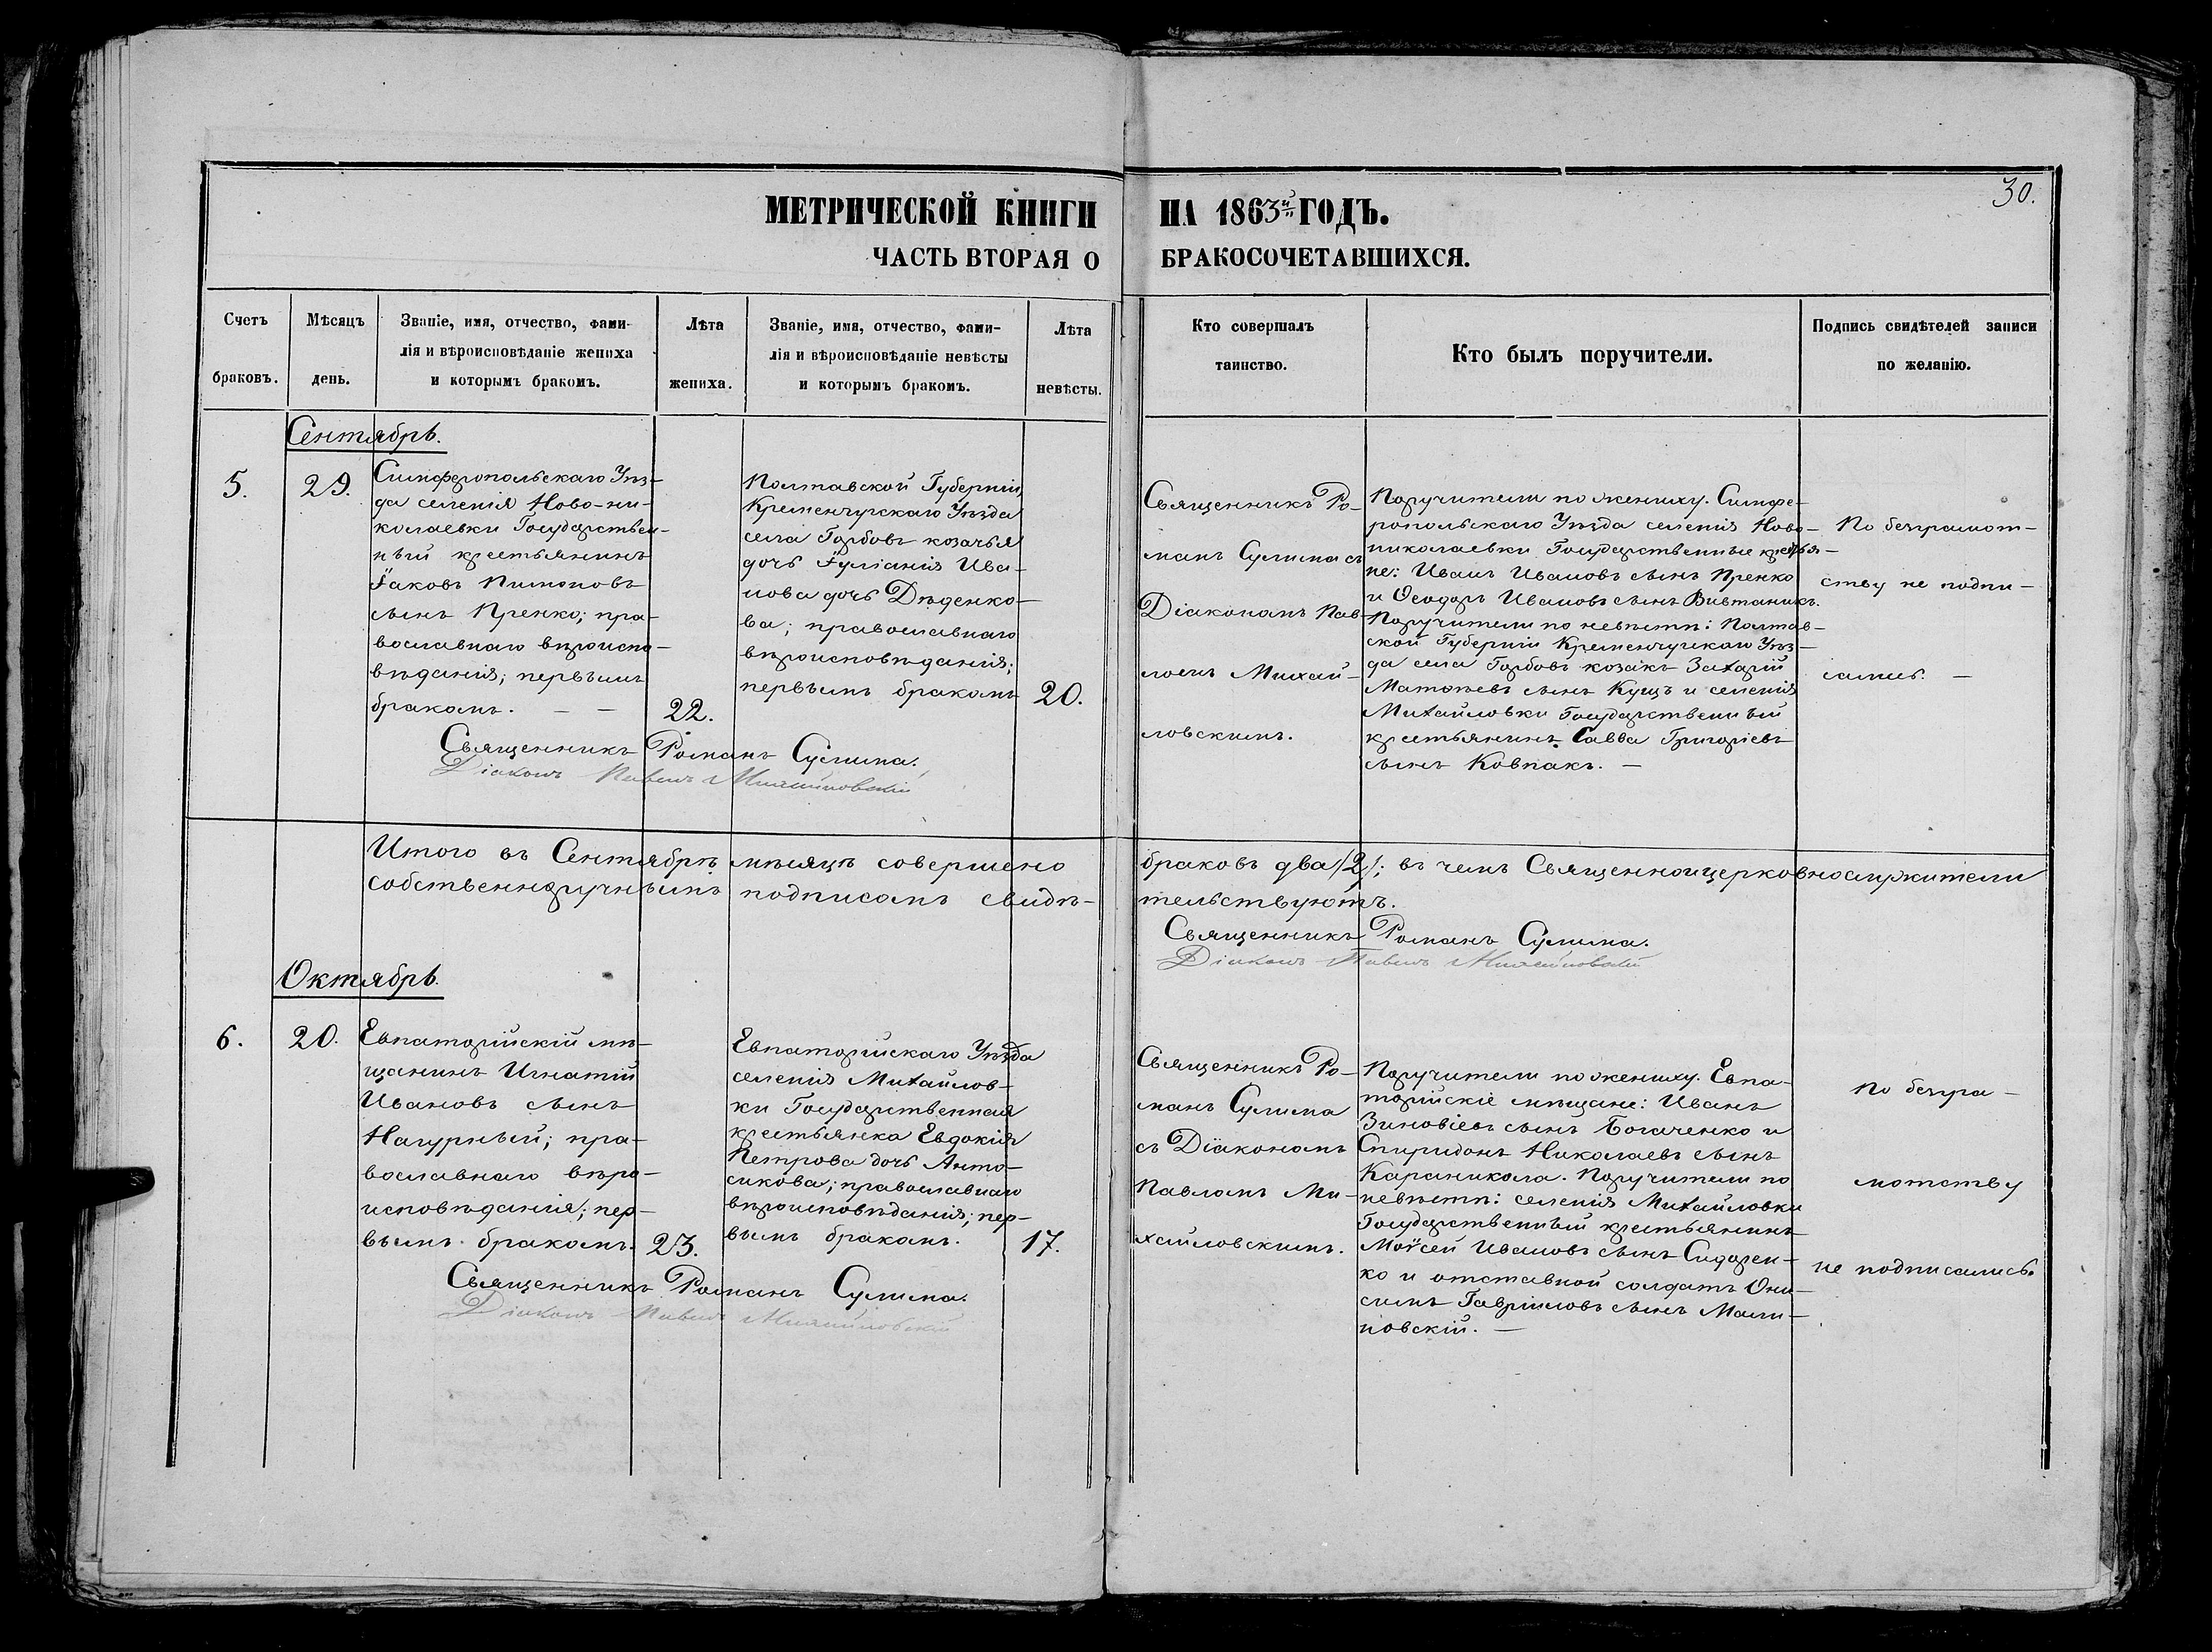 30.
МЕТРИЧЕСКОЙ КНИГИ НА 1863й ГОДЪ.
ЧАСТЬ ВТОРАЯ О БРАКОСОЧЕТАВШИХСЯ.
Счетъ
браковъ.
Мѣсяцъ
день.
Званіе, имя, отчество, фами-
лія и вѣроисповѣданіе жениха
и которымъ бракомъ.
Лѣта
жениха.
Званіе, имя, отчество, фами-
лія и вѣроисповѣданіе невѣсты
и которымъ бракомъ.
Лѣта
невѣсты.
Кто совершалъ
таинство.
Кто былъ поручители.
Подпись свидѣтелей записи
по желанію.
Сентябрь.
5.
29.
Симферопольскаго Уѣз-
да селенія Ново-ни-
колаевки Государствен-
ный крестьянинъ
Іаковъ Пимоновъ
сынъ Пренко; пра-
вославнаго вѣроиспо-
вѣданія; первымъ
бракомъ. — —
22.
Полтавской Губерніи,
Кременчугскаго Уѣзда
села Горбовъ козачья
дочь Іуліанія Ива-
нова дочь Дѣденко-
ва; православнаго
вѣроисповѣданія;
первымъ бракомъ
20.
Священникъ Ро-
манъ Сулима съ
Діакономъ Пав-
ломъ Михай-
ловскимъ.
Поручители по жениху. Симфе-
ропольскаго Уѣзда селенія Ново-
николаевки Государственные крестья-
не: Иванъ Ивановъ сынъ Пренко
и Ѳеодоръ Ивановъ сынъ Вивтаникъ.
Поручители по невѣсти: Полтав-
ской Губерніи Кременчугскаго Уѣз-
да села Горбовъ козакъ Захарій
Матѳѣевъ сынъ Кущъ и селенія
Михайловки Государственный
крестьянинъ Савва Григоріевъ
сынъ Ковпакъ. —
По безграмот-
ству не подпи-
сались. —
Священникъ Романъ Сулима.
Діаконъ Павелъ Михайловскій
Итого въ Сентябрѣ мѣсяцѣ совершено браковъ два /2/; въ чемъ Священноицерковнослужители
собственноручнымъ подписомъ свидѣ-тельствуютъ.
Священникъ Романъ Сулима.
Діаконъ Павелъ Михайловскій
Октябрь.
6.
20.
Евпаторійскій мѣ-
щанинъ Игнатій
Ивановъ сынъ
Нагурный; пра-
вославнаго вѣро-
исповѣданія; пер-
вымъ бракомъ.
23.
Евпаторійскаго Уѣзда
селенія Михайлов-
ки Государственная
крестьянка Евдокія
Петрова дочь Анто-
сикова; православнаго
вѣроисповѣданія; пер-
вымъ бракомъ.
17.
Священникъ Ро-
манъ Сулима
съ Діакономъ
Павломъ Ми-
хайловскимъ.
Поручители по жениху. Евпа-
торійскіе мѣщане: Иванъ
Зиновіевъ сынъ Богаченко и
Спиридонъ Николаевъ сынъ
Караникола. Поручители по
невѣсти: селенія Михайловки
Государственный крестьянинъ
Моѵсей Ивановъ сынъ Сидорен-
ко и отставной солдатъ Они-
симъ Гавріиловъ сынъ Мали-
новскій. —
По безгра-
мотству
не подписались.
Священникъ Романъ Сулима.
Діаконъ Павелъ Михайловскій